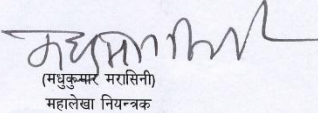 (मधुकुमार मरासिनी)
महालेखा नियन्त्रक